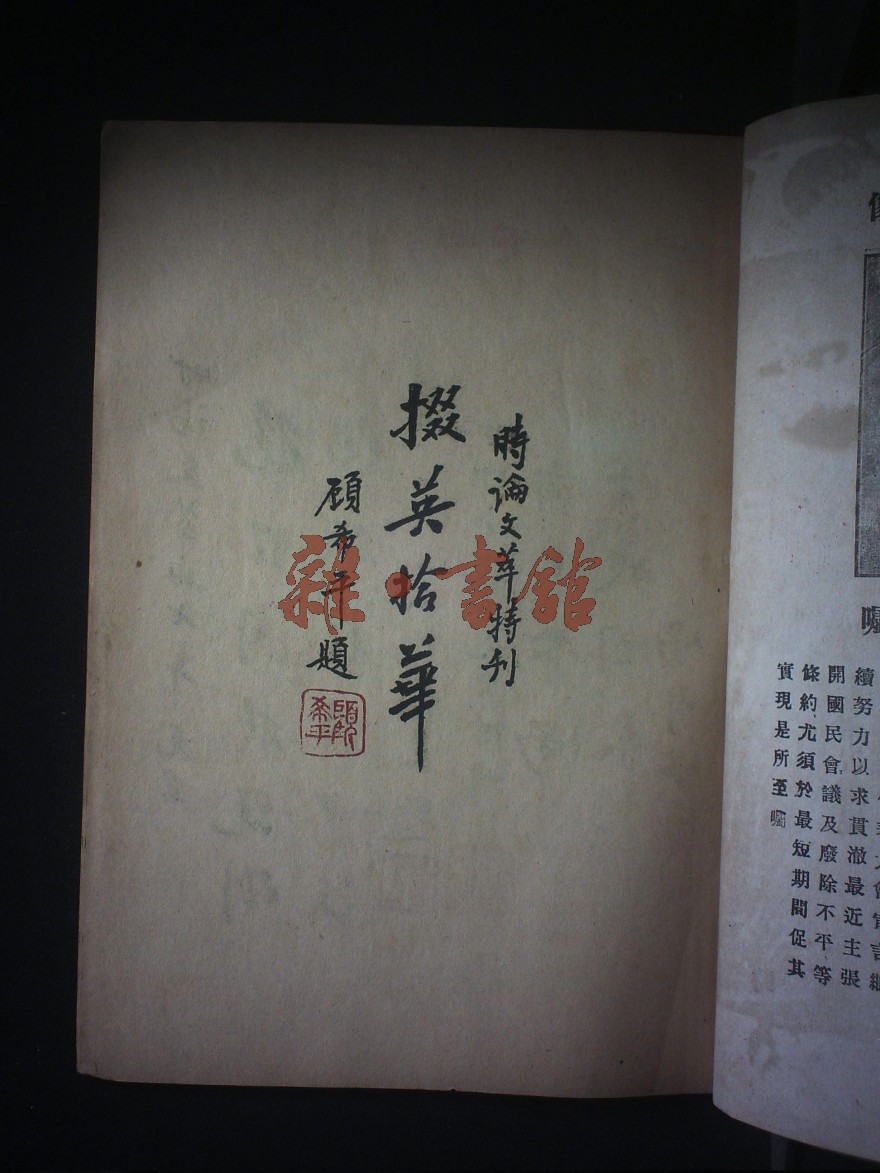 時論文萃特刊
掇英拾華
顧希平題
顧希平
雜·書館
續努力以求貫澈最近主張
開國民會議及廢除不平等
條約尤須於最短期間促其
實現是所至囑